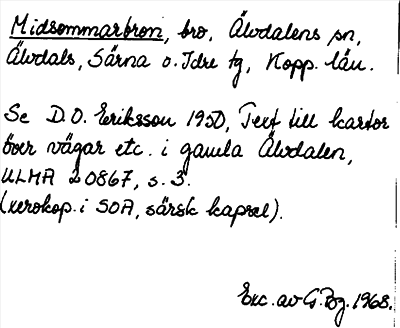 Midsommarbron, bro, Älvdalens sn,
Älvdals, Särna o. Idre tg, Kopp. län.
Se D.O. Eriksson 1950, Text till kartor
över vägar etc. i gamla Älvdalen,
ULMA 20867, s. 3.
(xerokop. i SOA, särsk kapsel).
Exc. av G. Bg. 1968.